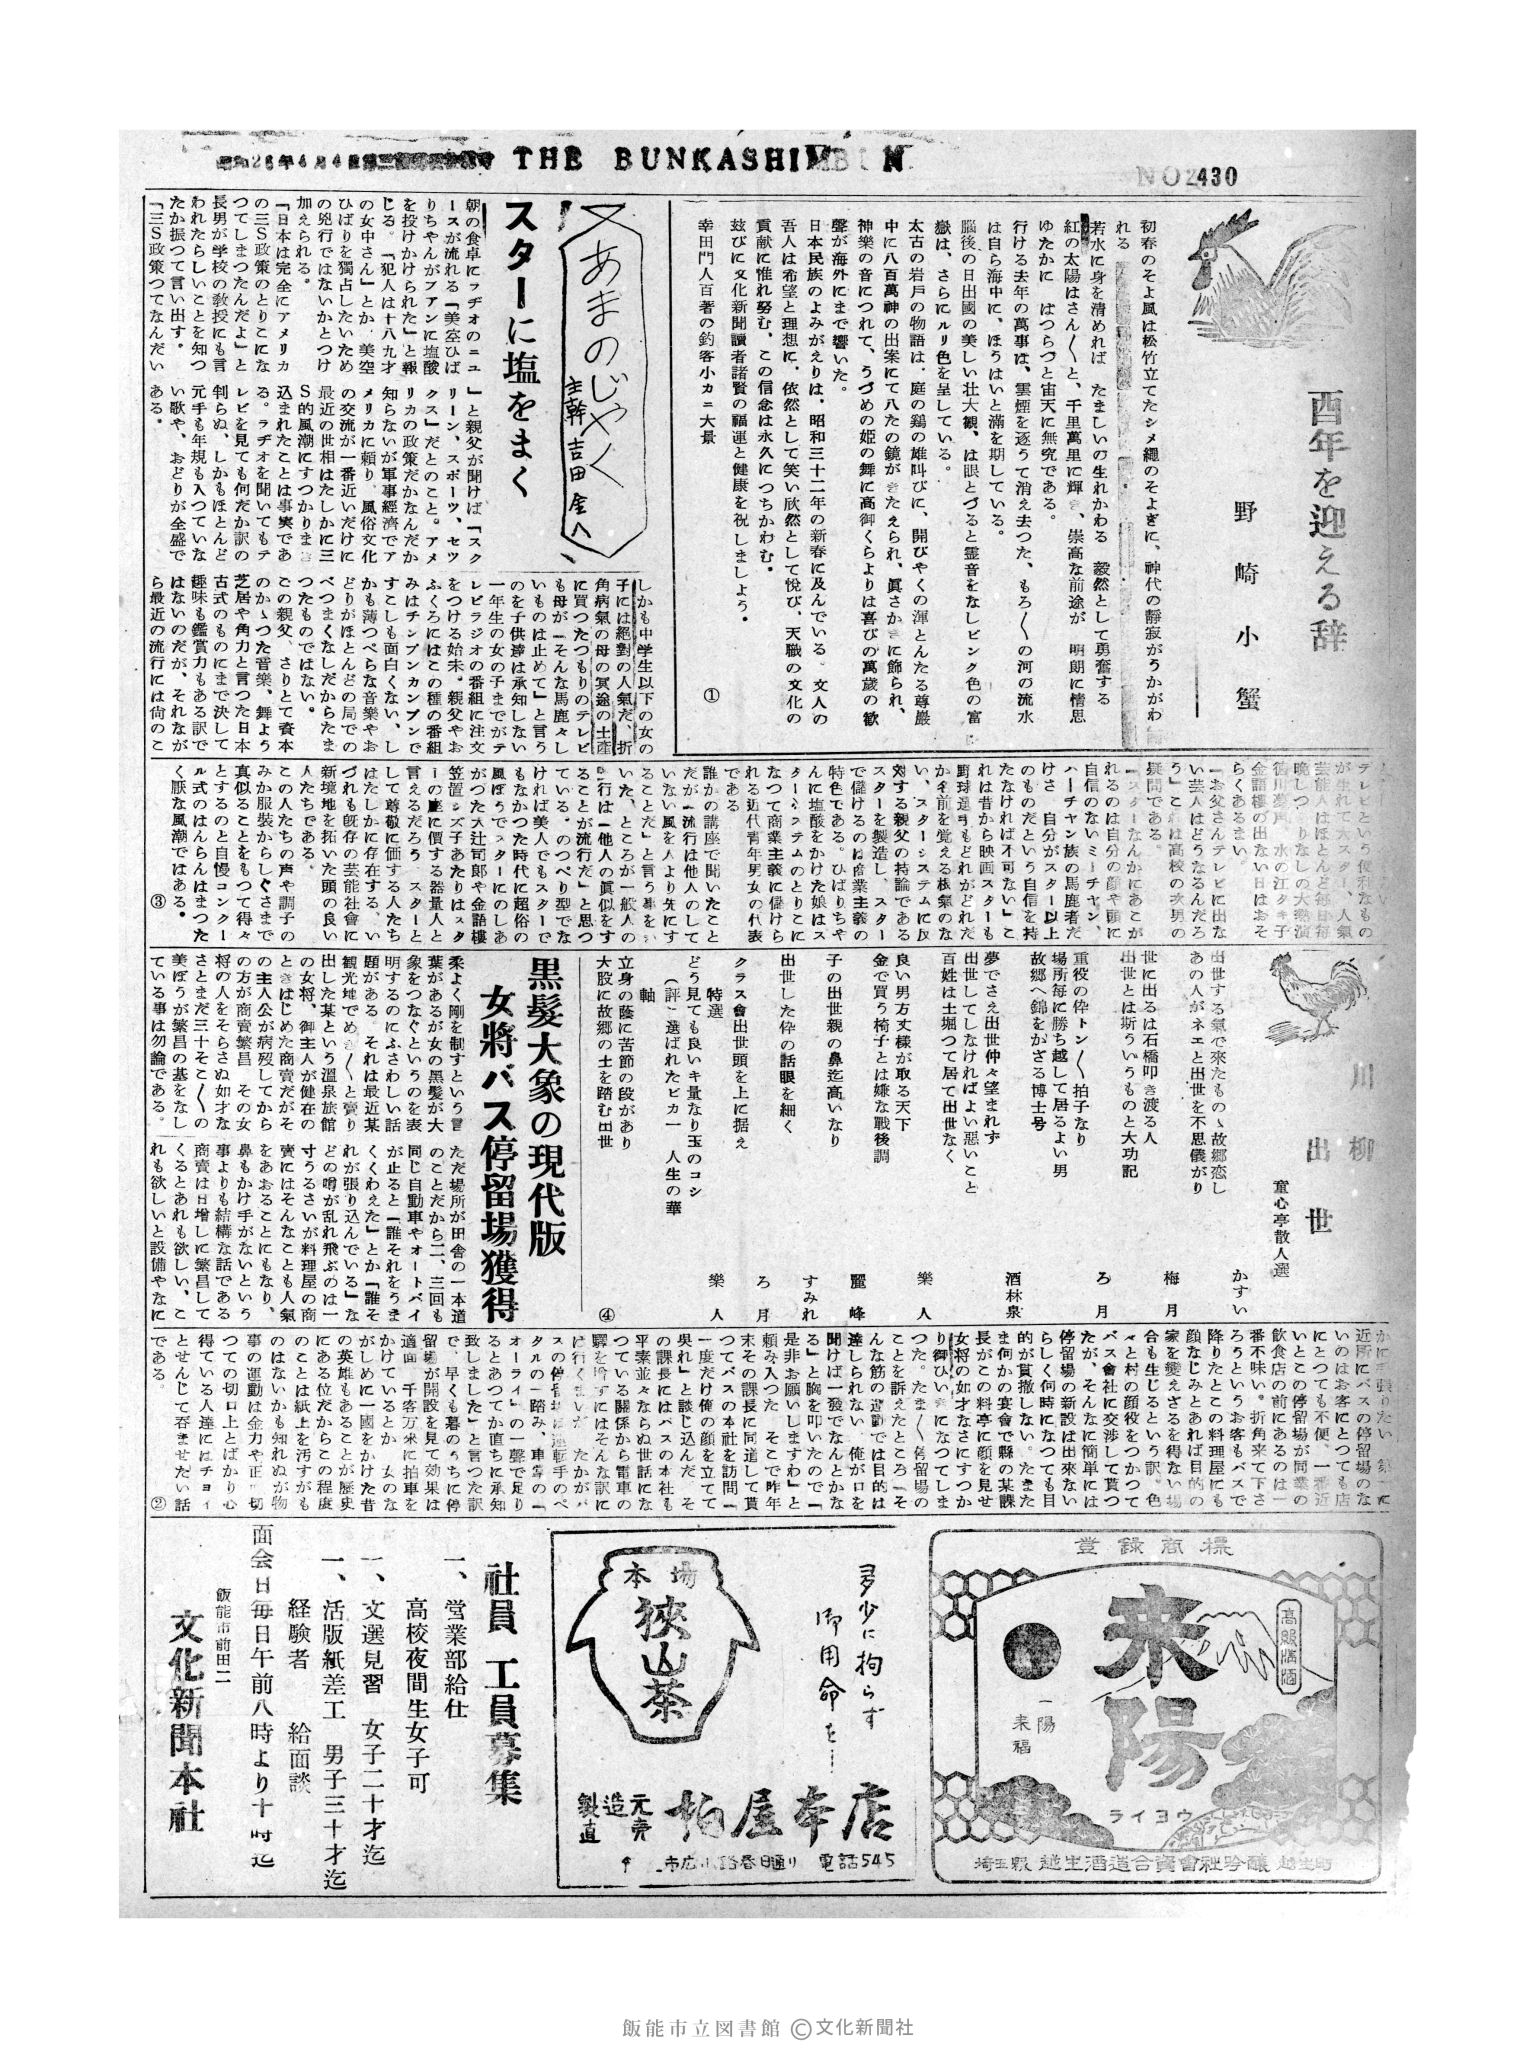 THE BUNKASHIMBUN
NO2430
酉年を迎える辞
野崎小蟹
初春のそよ風は松竹立てたシメ縄のそよぎに、神代の靜寂がうかがわ
れる
若水に身を清めれば　たましいの生れかわる　毅然として勇奮する
紅の太陽はさん〱と、千里萬里に輝き、崇高な前途が　明朗に情思
ゆたかに　はつらつと宙天に無究である。
行ける去年の萬事は、雲煙を逐うて消え去つた、もろ〱の河の流水
は自ら海中に、ほうはいと滿を期している。
腦後の日出國の美しい壮大観、は眼とづると霊音をなしピンク色の富
嶽は、さらにルリ色を呈している。
太古の岩戸の物語は、庭の鷄の雄叫びに、開びやくの渾とんたる尊嚴
中に八百萬神の出案にて八たの鏡がきたえられ、眞さかきに飾られ、
神樂の音につれて、うづめの姫の舞に高御くらよりは喜びの萬歳の歓
聲が海外にまで響いた。
日本民族のよみがえりは、昭和三十二年の新春に及んでいる。文人の
吾人は希望と理想に、依然として笑い欣然として悦び、天職の文化の
貢献に惟れ努む、この信念は永久につちかわむ。
玆びに文化新聞讀者諸賢の福運と健康を祝しましよう。
幸田門人百著の釣客小カニ大景
①
又あまのじゃく
主幹吉田金八
スターに塩をまく
朝の食卓にラヂオのニュ
ースが流れる「美空ひば
りちやんがフアンに塩酸
を投けかけられた」と報
じる。「犯人は十八九才
の女中さん」とか、美空
ひばりを獨占したいため
の兇行ではないかとつけ
加えられる。
「日本は完全にアメリカ
の三S政策のとりこにな
つてしまつたんだよ」と
長男が学校の教授にも言
われたらしいことを知つ
たか振つて言い出す。
「三S政策つてなんだい
」と親父が聞けば「スク
リーン、スポーツ、セツ
クス」だとのこと。アメ
リカの政策だかなんだか
知らないが軍事經濟でア
メリカに頼り、風俗文化
の交流が一番近いだけに
最近の世相はたしかに三
S的風潮にすつかりまき
込まれたことは事実であ
る。ラヂオを聞いてもテ
レビを見ても何だか訳の
判らぬ、しかもほとんど
元手も年規も入つていな
い歌や、おどりが全盛で
ある。
しかも中学生以下の女の
子には絕對の人氣だ、折
角病氣の母の冥途の土産
に買つたつもりのテレビ
も母が「そんな馬鹿々し
いものは止めて」と言う
のを子供達は承知しない
一年生の女の子までがテ
レビラジオの番組に注文
をつける始末。親父やお
ふくろにはこの種の番組
みはチンプンカンプンで
すこしも面白くない、し
かも薄つぺらな音樂やお
どりがほとんどの局での
べつまくなしだからたま
つたものではない。
この親父、さりとて資本
のかゝつた音樂、舞よう
芝居や角力と言つた日本
古式のものにまで決して
趣味も鑑賞力もある訳で
はないのだが、それなが
ら最近の流行には尙のこ
テレビという便利なもの
が生れて大スター、人氣
芸能人はほとんど每日每
晩しつきりなしの大熱演
徳川夢声、水の江タキ子
金語樓の出ない日はおそ
らくあるまい。
「お父さんテレビに出な
い芸人はどうなるんだろ
う」これは高校の次男の
疑問である。
「スターなんかにあこが
れるのは自分の顔や頭に
自信のないミーチャン、
ハーチャン族の馬鹿者だ
けさ、自分がスター以上
のものだという自信を持
たなければ不可ない」こ
れは昔から映画スターも
野球選手もどれがどれだ
か名前を覚える根氣のな
い、スターシステムに反
対する親父の持論である
スターを製造し、スター
で儲けるのは商業主義の
特色である。ひばりちや
んに塩酸をかけた娘はス
ターシステムのとりこに
なつて商業主義に儲けら
れる近代青年男女の代表
である
誰かの講座で聞いたこと
だが「流行は他人のして
いない風を人より先にす
ることだ」と言う事をい
いた、ところが一般人の
流行は「他人の眞似をす
ることが流行だ」と思つ
ている。のつぺり型でな
ければ美人でもスターで
もなかつた時代に超俗の
風ぼうでスターにのしあ
がつた大辻司郎や金語樓
笠置シズ子あたりはスタ
ーの座に價する器量人と
言えるだろう　スターと
して尊敬に価する人たち
はたしかに存在する、い
づれも既存の芸能社會に
新境地を拓いた頭の良い
人たちである。
この人たちの声や調子の
みか服裝からしぐさまで
真似ることをもつて得々
とするのと自慢コンクー
ル式のはんらんはまつた
く厭な風潮ではある。
③
川柳
出世
童心亭散人選
出世する氣で來たものゝ故郷恋し
かすい
あの人がネエと出世を不思儀がり
世に出るは石橋叩き渡る人
梅月
出世とは斯ういうものと大功記
重役の伜トン〱拍子なり
ろ月
場所每に勝ち越して居るよい男
故郷へ錦をかざる博士号
夢でさえ出世仲々望まれず
酒林泉
出世してしなければよい悪いこと
百姓は土堀つて居て出世なく
良い男方丈様が取る天下
樂人
金で買う椅子とは嫌な戰後調
子の出世親の鼻迄高いなり
麗峰
出世した伜の話眼を細く
すみれ
クラス會出世頭を上に据え
ろ月
特選
どう見ても良いキ量なり玉のコシ
樂人
（評）選ばれたピカ一　人生の華
軸
立身の蔭に苦節の段があり
大股に故郷の土を踏む出世
④
黒髪大象の現代版
女將バス停留場獲得
柔よく剛を制すという言
葉があるが女の黒髪が大
象をつなぐというのを表
明するのにふさわしい話
題がある。それは最近某
観光地でめき〱と賣り
出した某という溫泉旅館
の女将、御主人が健在の
ときはじめた商売だがそ
の主人公が病歿してから
の方が商賣繁昌　その女
将の人をそらさぬ如才な
さとまだ三十そこ〱の
美ぼうが繁昌の基をなし
ている事は勿論である。
ただ場所が田舎の一本道
のことだから二、三回も
同じ自動車やオートバイ
が止ると「誰それをうま
くくわえた」とか「誰そ
れが張り込んでいる」な
どの噂が乱れ飛ぶのは一
寸うるさいが料理屋の商
賣にはそんなことも人氣
をあおることにもなり、
鼻もかけ手がないという
事よりも結構な話である
商賣は日増しに繁昌して
くるとあれも欲しい、こ
れも欲しいと設備やなに
かに手張りたい、第一に
近所にバスの停留場のな
いのはお客にとつても店
にとつても不便、一番近
いとこの停留場が同業の
飲食店の前にあるのは一
番不味い。折角来て下さ
ろうというお客もバスで
降りたとこの料理屋にも
顔なじみとあれば目的の
家を變えざるを得ない場
合も生じるという訳。色
々と村の顔役をつかつて
バス會社に交渉して貰つ
たが、そんなに簡単には
停留場の新設は出來ない
らしく何時になつても目
的が貫徹しない。たまた
ま何かの宴會で縣の某課
長がこの料亭に顔を見せ
女将の如才なさにすつか
り御ひいきになつてしま
つた。たま〱停留場の
ことを訴えたところ「そ
んな筋の運動では目的は
達しられない、俺が口を
聞けば一發でなんとかな
る」と胸を叩いたので「
是非お願いしますわ」と
頼み入つた　そこで昨年
末その課長に同道して貰
つてバスの本社を訪問一
一度だけ俺の顔を立てて
吳れ」と談じ込んだ。そ
の課長にはバスの本社も
平素並々ならぬ世話にな
つている關係から電車の
驛を増すにはそんな訳に
は行くまいが　たかがバ
スの停留場は運転手のペ
タルの一踏み、車掌の「
オーライ」の一聲で足り
るとあつてか直ちに承知
致しました」と言つた訳
で、早くも暮のうちに停
留場が開設を見て効果は
適面　千客万来に拍車を
かけているとか　女のな
がしめに一國をかけた昔
の英雄もあることが歷史
にある位だからこの程度
のことは紙上を汚すがも
のはないかも知れぬが物
事の運動は金力や正一切
つての切口上とばかり心
得ている人達にはチョイ
とせんじて吞ませたい話
である。
②
登録商標
高級清酒
來陽
ライヨウ
一陽
来福
埼玉縣 越生酒造合資會社吟醸 越生町
多少に拘らず
御用命を…
本場
狹山茶
製造元
直売
柏屋本店
市広小路春日通り　電話545
社員 工員募集
一、営業部給仕
高校夜間生女子可
一、文選見習　女子二十才迄
一、活版紙差工　男子三十才迄
経験者　給面談
面会日每日午前八時より十時迄
飯能市前田二
文化新聞本社
飯能市立図書館 ©文化新聞社